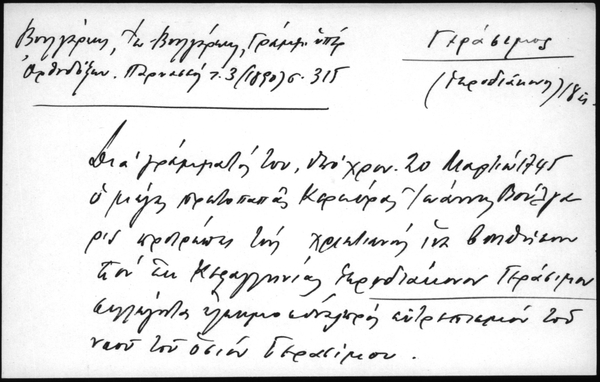 Βουλγάρεως, Ἰω. Βουλγάρεως, Γράμμα ὑπὲρ
Ὀρθοδόξων. Παρνασσὸς τ. 3 (1890) σ. 315
Γεράσιμος
(Ἱεροδιάκονος) 18
Διὰ γράμματός του, ὑπὸ χρον. 20 Μαρτίου 1745
ὁ μέγας πρωτοπαπᾶς Κερκύρας Ἰωάννης Βούλγα
ρις προτρέπει τοὺς χριστιανοὺς ἵνα βοηθήσουν
τὸν ἐκ Κεφαλληνίας Ἱεροδιάκονον Γεράσιμον
συλλέγοντα πρὸς εὐτρεπισμὸν τοῦ
ναοῦ τοῦ ὁσίου Γερασίμου.